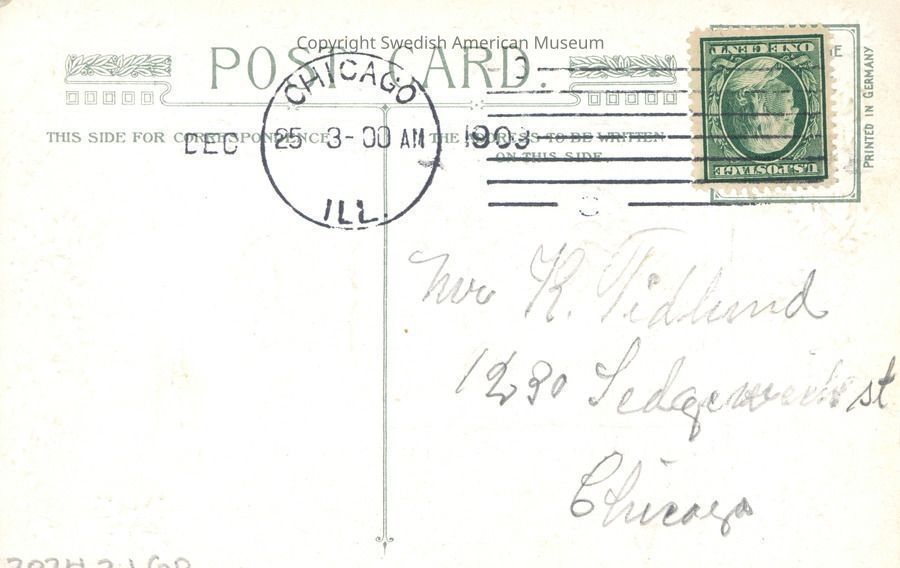 Copyright Swedish American Museum
POST CARD.
THIS SIDE FOR CORRESPONDENCE
THE ADDRESS TO BE WRITTEN
ON THIS SIDE.
CHICAGO
DEC 25 3-00 AM 1903
ILL.
D
ONE CENT
U.S. POSTAGE
E
PRINTED IN GERMANY
Mr K. Tidlund
1230 Sedgewick st
Chicago